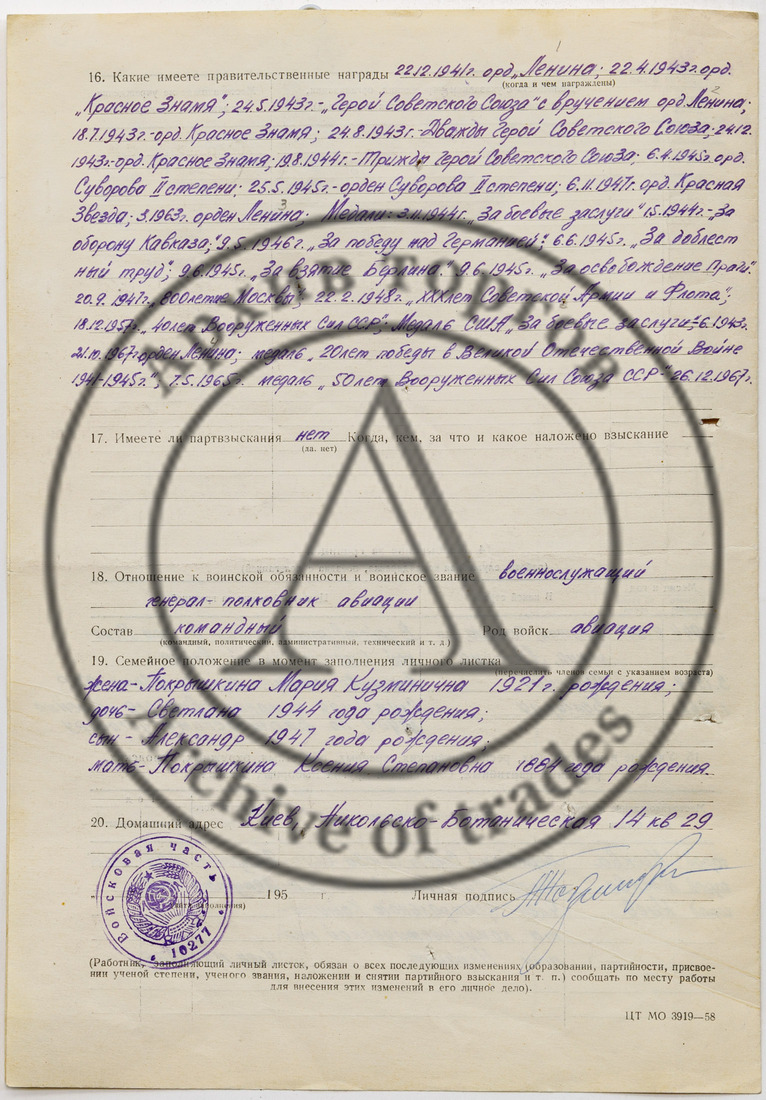 16. Какие имеете правительственные награды 22.12.1941г. орд. „Ленина; 22.4.1943г. орд.
(когда и чем награждены)
„Красное Знамя"; 24.5.1943г.- „Герой Советского Союза" с вручением орд. Ленина;
18.7.1943г.- орд. Красное Знамя; 24.8.1943г. Дважды Герой Советского Союза; 24.12.
1943г.- орд. Красное Знамя; 19.8.1944г. - Трижды Герой Советского Союза; 6.4.1945г. орд.
Суворова II степени; 25.5.1945г.- орден Суворова II степени; 6.11.1947г. орд. Красная
Звезда; 3.1963г. орден Ленина; Медали: 3.11.1944г. „За боевые заслуги" 1.5.1944г.- „За
оборону Кавказа"; 9.5.1946г. „За победу над Германией"; 6.6.1945г. „За доблест
ный труд"; 9.6.1945г. „За взятие Берлина". 9.6.1945г. „За освобождение Праги".
20.9.1947г. „800летие Москвы; 22.2.1948г. „XXXлет Советской Армии и Флота";
18.12.1957г. „40лет Вооруженных Сил СССР"; Медаль США „За боевые заслуги"- 6.1943г.
21.10.1967г орден Ленина; медаль „20лет победы в Великой Отечественной Войне
1941-1945г."; 7.5.1965г. медаль „50лет Вооруженных Сил Союза ССР-" 26.12.1967г.
17. Имеете ли партвзыскания нет Когда, кем, за что и какое наложено взыскание
(да, нет)
18. Отношение к воинской обязанности и воинское звание военнослужащий
генерал-полковник авиации
Состав командный Род войск авиация
(командный, политический, административный, технический и т. д.)
19. Семейное положение в момент заполнения личного листка
(перечислить членов семьи с указанием возраста)
жена- Покрышкина Мария Кузминична 1921 г. рождения;
дочь- Светлана 1944 года рождения;
сын - Александр 1947 года рождения;
мать- Покрышкина Ксения Степановна 1884 года рождения.
20. Домашний адрес Киев, Никольско-Ботаническая 14 кв 29
195 г Личная подпись
Войсковая часть
10277
(Работник, заполняющий личный листок, обязан о всех последующих изменениях (образовании, партийности, присвое-
нии ученой степени, ученого звания, наложении и снятии партийного взыскания и т. п.) сообщать по месту работы
для внесения этих изменений в его личное дело).
ЦТ МО 3919—58
Archive of trades